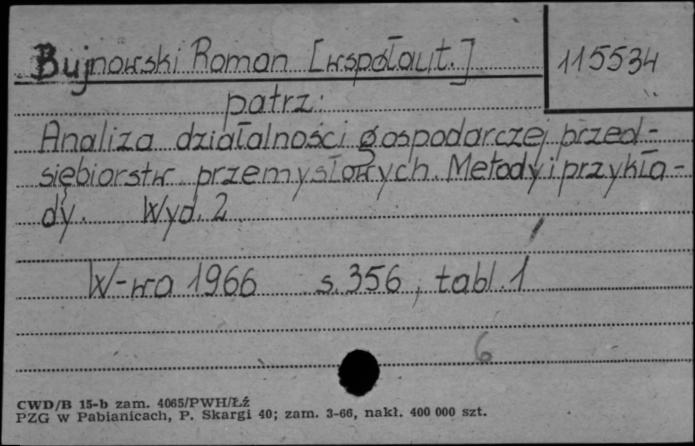 Bujnowski Roman [współaut.]
115534
patrz:
Analiza działalności gospodarczej przed-
siębiorstw przemysłowych. Metody i przykła-
dy. Wyd. 2
W-wa 1966 s. 356, tabl. 1
6
CWD/B 15-b zam. 4065/PWH/Łź
PZG w Pabianicach, P. Skargi 40; zam. 3-66, nakł. 400 000 szt.